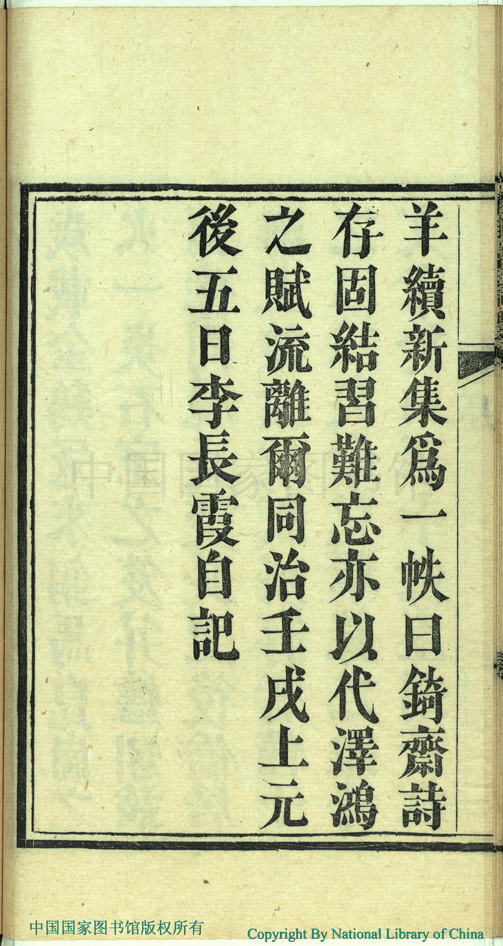 羊續新集爲一帙曰錡齋詩
存固結習難忘亦以代澤鴻
之賦流離爾同治壬戌上元
後五日李長霞自記
中国国家图书馆
中国国家图书馆版权所有
Copyright By National Library of China